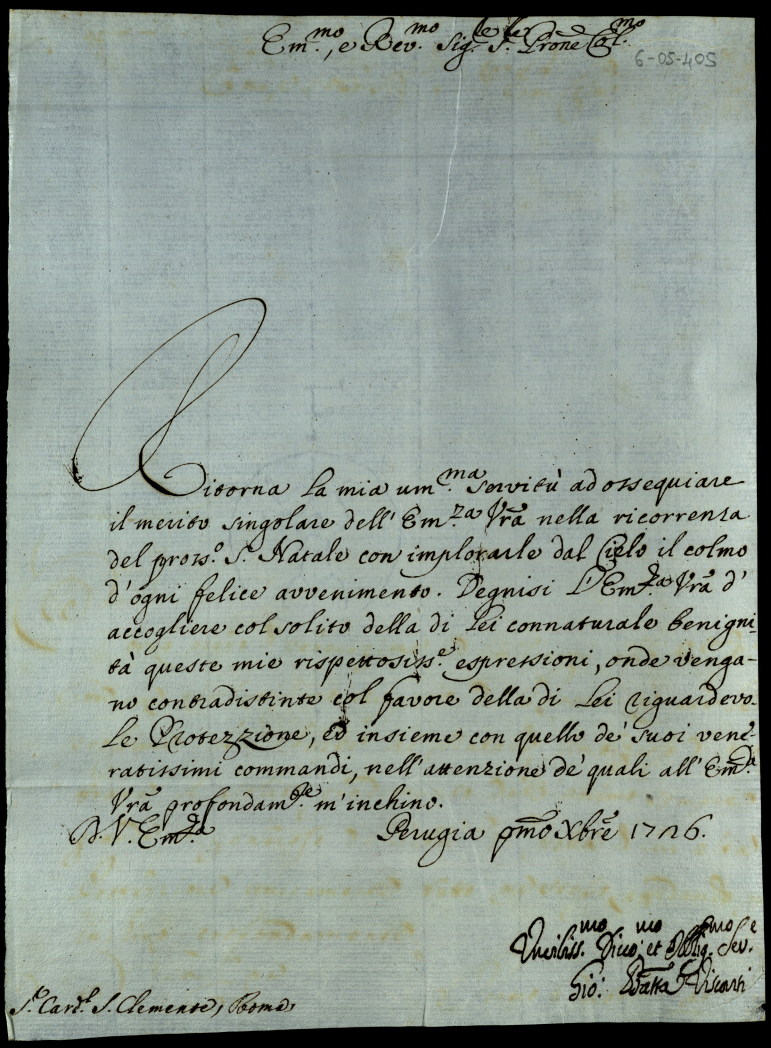 Em.mo, e Rev.mo Sig.re S.r Prōne Col.mo
6-05-405
Ritorna la mia um.ma servitù ad ossequiare
il merito singolare dell'Em.za Vrā nella ricorrenza
del pross.o S.o Natale con implorarle dal Cielo il colmo
d'ogni felice avvenimento. Degnisi L'Em.za Vrā d'
accogliere col solito della di Lei connaturale benigni-
tà queste mie rispettosiss.e espressioni, onde venga-
no contradistinte col favore della di Lei riguardevo-
le Protezzione, ed insieme con quello de' suoi vene-
ratissimi commandi, nell'attenzione de' quali all'Em.za
Vrā profondam.te m'inchino.
D. V. Em.za Perugia p̄mo Xbrē 1726.
Umiliss.mo Divo.mo et Obblig.mo Ser.e
Gio: Batta
S.r Card.l S. Clemente, Roma